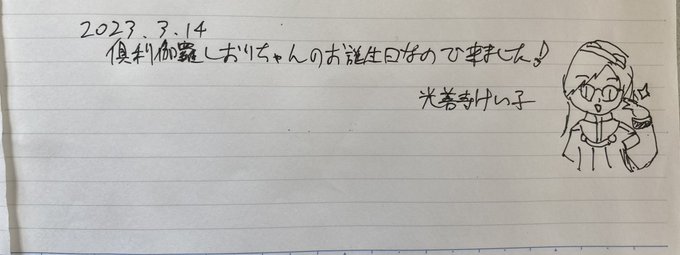 2023.3.14
倶利伽羅しおりちゃんのお誕生日なので来ました!
光善寺けい子